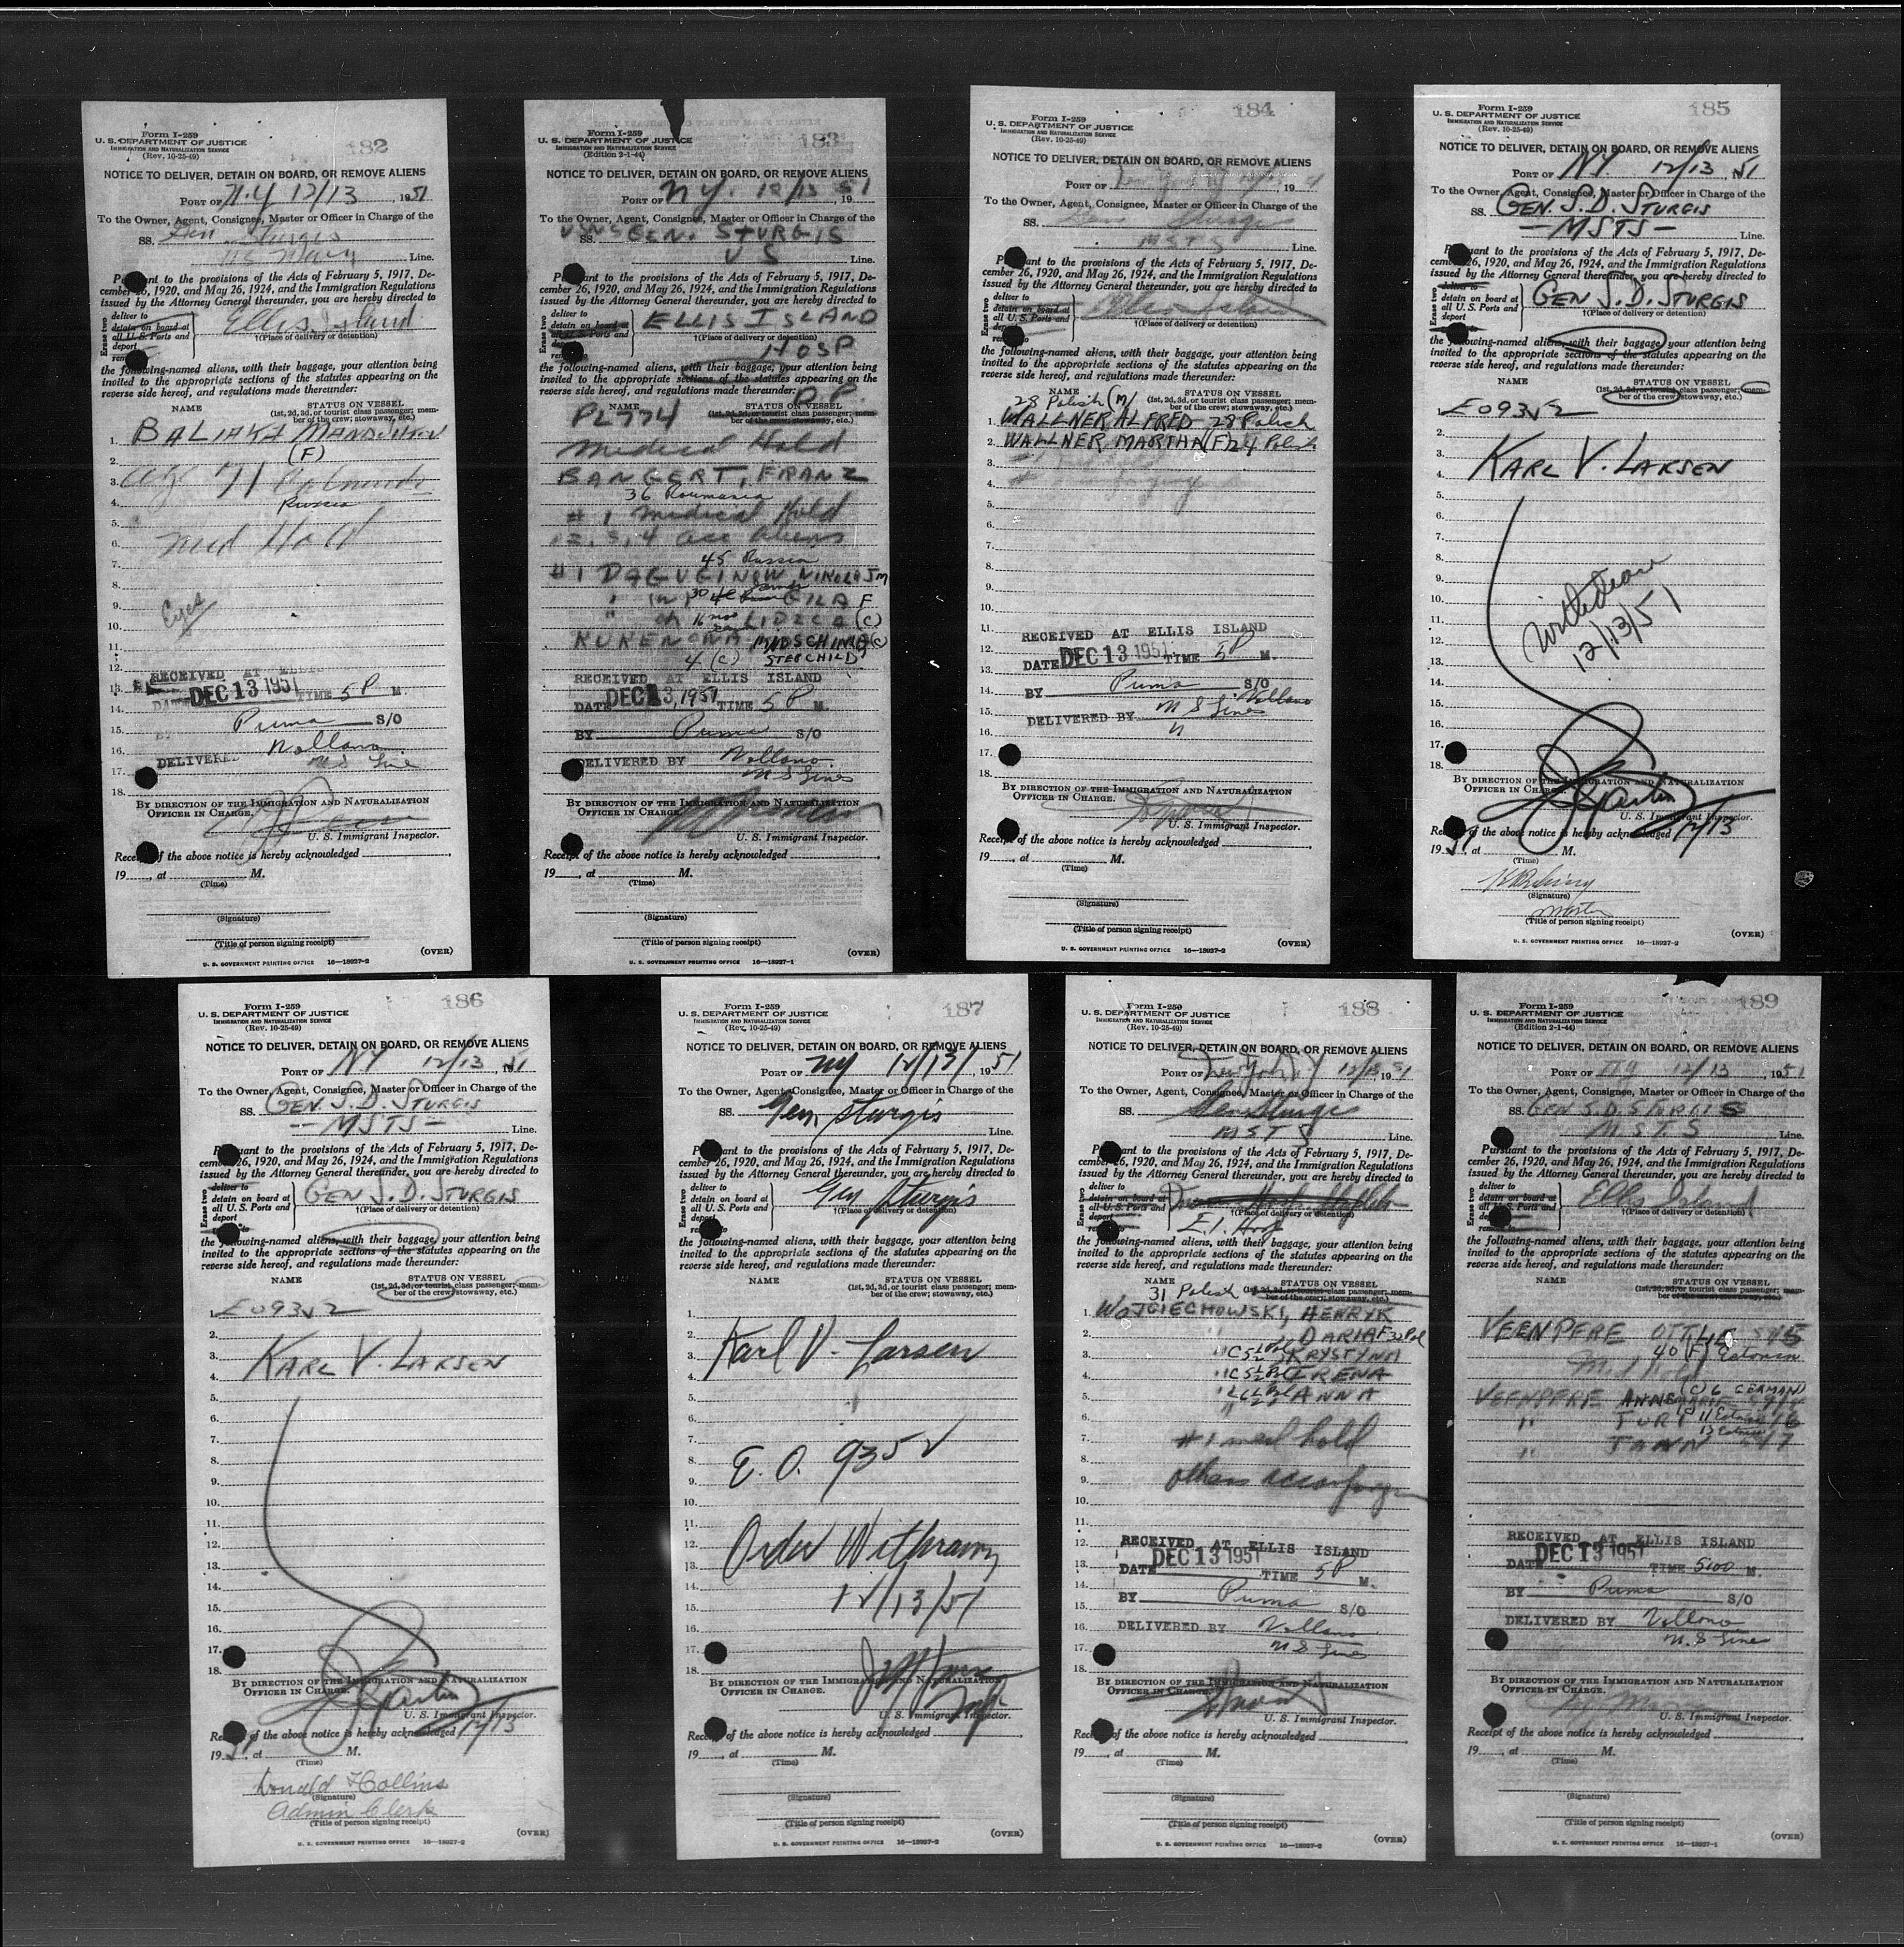 182
Form I-259
U. S. DEPARTMENT OF JUSTICE
IMMIGRATION AND NATURALIZATION SERVICE
(Rev. 10-25-49)
NOTICE TO DELIVER, DETAIN ON BOARD, OR REMOVE ALIENS
PORT OF N.Y 12/13, 1951
To the Owner, Agent, Consignee, Master or Officer in Charge of the
SS. Gen Sturgis
US Navy Line.
Pursuant to the provisions of the Acts of February 5, 1917, De-
cember 26, 1920, and May 26, 1924, and the Immigration Regulations
issued by the Attorney General thereunder, you are hereby directed to
Erase two
deliver to
detain on board at
all U. S. Ports and
deport
remove to
Ellis Island
†(Place of delivery or detention)
the following-named aliens, with their baggage, your attention being
invited to the appropriate sections of the statutes appearing on the
reverse side hereof, and regulations made thereunder:
NAME STATUS ON VESSEL
(1st, 2d, 3d, or tourist class passenger; mem-
ber of the crew; stowaway, etc.)
1. BALJAKA
2. (F)
3. age 71
4. Russia
5.
6. Med Hold
7.
8.
9. Eyes
10.
11.
12. RECEIVED AT ELLIS
13. DATE DEC 13 1951 TIME 5 P M.
14.
15. BY Puma S/O
16. Vollono
17. DELIVERED M S Line
18.
BY DIRECTION OF THE IMMIGRATION AND NATURALIZATION
OFFICER IN CHARGE.
U. S. Immigrant Inspector.
Receipt of the above notice is hereby acknowledged
19, at M.
(Time)
(Signature)
(Title of person signing receipt)
(OVER)
U. S. GOVERNMENT PRINTING OFFICE 16—18927-2
183
Form I-259
U. S. DEPARTMENT OF JUSTICE
IMMIGRATION AND NATURALIZATION SERVICE
(Edition 2-1-44)
NOTICE TO DELIVER, DETAIN ON BOARD, OR REMOVE ALIENS
PORT OF NY. 12/13 51, 19
To the Owner, Agent, Consignee, Master or Officer in Charge of the
SS. USNS GEN. STURGIS
US Line.
Pursuant to the provisions of the Acts of February 5, 1917, De-
cember 26, 1920, and May 26, 1924, and the Immigration Regulations
issued by the Attorney General thereunder, you are hereby directed to
Erase two
deliver to
detain on board at
all U. S. Ports and
deport
remove to
ELLIS ISLAND
†(Place of delivery or detention)
HOSP
the following-named aliens, with their baggage, your attention being
invited to the appropriate sections of the statutes appearing on the
reverse side hereof, and regulations made thereunder:
D.P.
NAME STATUS ON VESSEL
(1st, 2d, 3d, or tourist class passenger; mem-
ber of the crew; stowaway, etc.)
PL 774
Medical Hold
BANGERT, FRANZ
36 Roumania
#1 Medical Hold
2, 3, 4 acc aliens
45 Russia
#1 DAGUGINOW NIKOLAJ M
" (W) 30 GILA F
" ch 16 mos LIDZCA (C)
KUKENOWA MADSCHINA (C)
4 (C) STEPCHILD
RECEIVED AT ELLIS ISLAND
DATE DEC 13, 1951 TIME 5 P M.
BY Puma S/O
DELIVERED BY Vollono
M S Lines
BY DIRECTION OF THE IMMIGRATION AND NATURALIZATION
OFFICER IN CHARGE.
U. S. Immigrant Inspector.
Receipt of the above notice is hereby acknowledged
19, at M.
(Time)
(Signature)
(Title of person signing receipt)
(OVER)
U. S. GOVERNMENT PRINTING OFFICE 16—18927-1
184
Form I-259
U. S. DEPARTMENT OF JUSTICE
IMMIGRATION AND NATURALIZATION SERVICE
(Rev. 10-25-49)
NOTICE TO DELIVER, DETAIN ON BOARD, OR REMOVE ALIENS
PORT OF , 19
To the Owner, Agent, Consignee, Master or Officer in Charge of the
SS. Gen Sturgis
MSTS Line.
Pursuant to the provisions of the Acts of February 5, 1917, De-
cember 26, 1920, and May 26, 1924, and the Immigration Regulations
issued by the Attorney General thereunder, you are hereby directed to
Erase two
deliver to
detain on board at
all U. S. Ports and
deport
remove to
Ellis Island
†(Place of delivery or detention)
the following-named aliens, with their baggage, your attention being
invited to the appropriate sections of the statutes appearing on the
reverse side hereof, and regulations made thereunder:
NAME STATUS ON VESSEL
(1st, 2d, 3d, or tourist class passenger; mem-
ber of the crew; stowaway, etc.)
28 Polish (M)
1. WALLNER ALFRED 28 Polish
2. WALLNER MARTHA (F) 24 Polish
3.
4.
5.
6.
7.
8.
9.
10.
11. RECEIVED AT ELLIS ISLAND
12. DATE DEC 13 1951 TIME 5 P M.
13.
14. BY Puma S/O
15. DELIVERED BY M S Lines Vollono
16.
17.
18.
BY DIRECTION OF THE IMMIGRATION AND NATURALIZATION
OFFICER IN CHARGE.
U. S. Immigrant Inspector.
Receipt of the above notice is hereby acknowledged
19, at M.
(Time)
(Signature)
(Title of person signing receipt)
(OVER)
U. S. GOVERNMENT PRINTING OFFICE 16—18927-2
185
Form I-259
U. S. DEPARTMENT OF JUSTICE
IMMIGRATION AND NATURALIZATION SERVICE
(Rev. 10-25-49)
NOTICE TO DELIVER, DETAIN ON BOARD, OR REMOVE ALIENS
PORT OF NY 12/13, 51
To the Owner, Agent, Consignee, Master or Officer in Charge of the
SS. GEN. S.D. STURGIS
-MSTS- Line.
Pursuant to the provisions of the Acts of February 5, 1917, De-
cember 26, 1920, and May 26, 1924, and the Immigration Regulations
issued by the Attorney General thereunder, you are hereby directed to
Erase two
deliver to
detain on board at
all U. S. Ports and
deport
remove to
GEN S.D. STURGIS
†(Place of delivery or detention)
the following-named aliens, with their baggage, your attention being
invited to the appropriate sections of the statutes appearing on the
reverse side hereof, and regulations made thereunder:
NAME STATUS ON VESSEL
(1st, 2d, 3d, or tourist class passenger; mem-
ber of the crew; stowaway, etc.)
1. EO9352
2.
3. KARL V. LARSEN
4.
5.
6.
7.
8.
9.
10. Withdrawn
11. 12/13/51
12.
13.
14.
15.
16.
17.
18.
BY DIRECTION OF THE IMMIGRATION AND NATURALIZATION
OFFICER IN CHARGE.
U. S. Immigrant Inspector.
Receipt of the above notice is hereby acknowledged 12/13
1951, at M.
(Time)
(Signature)
Master
(Title of person signing receipt)
(OVER)
U. S. GOVERNMENT PRINTING OFFICE 16—18927-2
186
Form I-259
U. S. DEPARTMENT OF JUSTICE
IMMIGRATION AND NATURALIZATION SERVICE
(Rev. 10-25-49)
NOTICE TO DELIVER, DETAIN ON BOARD, OR REMOVE ALIENS
PORT OF NY 12/13, 51
To the Owner, Agent, Consignee, Master or Officer in Charge of the
SS. GEN. S.D. STURGIS
-MSTS- Line.
Pursuant to the provisions of the Acts of February 5, 1917, De-
cember 26, 1920, and May 26, 1924, and the Immigration Regulations
issued by the Attorney General thereunder, you are hereby directed to
Erase two
deliver to
detain on board at
all U. S. Ports and
deport
remove to
GEN S.D. STURGIS
†(Place of delivery or detention)
the following-named aliens, with their baggage, your attention being
invited to the appropriate sections of the statutes appearing on the
reverse side hereof, and regulations made thereunder:
NAME STATUS ON VESSEL
(1st, 2d, 3d, or tourist class passenger; mem-
ber of the crew; stowaway, etc.)
1. EO9352
2.
3. KARL V. LARSEN
4.
5.
6.
7.
8.
9.
10.
11.
12.
13.
14.
15.
16.
17.
18.
BY DIRECTION OF THE IMMIGRATION AND NATURALIZATION
OFFICER IN CHARGE.
U. S. Immigrant Inspector.
Receipt of the above notice is hereby acknowledged 12/13
1951, at M.
(Time)
Donald F Collins
(Signature)
Admin Clerk
(Title of person signing receipt)
(OVER)
U. S. GOVERNMENT PRINTING OFFICE 16—18927-2
187
Form I-259
U. S. DEPARTMENT OF JUSTICE
IMMIGRATION AND NATURALIZATION SERVICE
(Rev. 10-25-49)
NOTICE TO DELIVER, DETAIN ON BOARD, OR REMOVE ALIENS
PORT OF NY 12/13/, 1951
To the Owner, Agent, Consignee, Master or Officer in Charge of the
SS. Gen Sturgis
Line.
Pursuant to the provisions of the Acts of February 5, 1917, De-
cember 26, 1920, and May 26, 1924, and the Immigration Regulations
issued by the Attorney General thereunder, you are hereby directed to
Erase two
deliver to
detain on board at
all U. S. Ports and
deport
remove to
Gen Sturgis
†(Place of delivery or detention)
the following-named aliens, with their baggage, your attention being
invited to the appropriate sections of the statutes appearing on the
reverse side hereof, and regulations made thereunder:
NAME STATUS ON VESSEL
(1st, 2d, 3d, or tourist class passenger; mem-
ber of the crew; stowaway, etc.)
1.
2.
3. Karl V. Larsen
4.
5.
6.
7.
8. E. O. 9352
9.
10.
11.
12. Order Withrawn
13.
14.
15. 12/13/51
16.
17.
18.
BY DIRECTION OF THE IMMIGRATION AND NATURALIZATION
OFFICER IN CHARGE.
U. S. Immigrant Inspector.
Receipt of the above notice is hereby acknowledged
19, at M.
(Time)
(Signature)
(Title of person signing receipt)
(OVER)
U. S. GOVERNMENT PRINTING OFFICE 16—18927-2
188
Form I-259
U. S. DEPARTMENT OF JUSTICE
IMMIGRATION AND NATURALIZATION SERVICE
(Rev. 10-25-49)
NOTICE TO DELIVER, DETAIN ON BOARD, OR REMOVE ALIENS
PORT OF New York NY 12/13 1951
To the Owner, Agent, Consignee, Master or Officer in Charge of the
SS. Gen Sturgis
MSTS Line.
Pursuant to the provisions of the Acts of February 5, 1917, De-
cember 26, 1920, and May 26, 1924, and the Immigration Regulations
issued by the Attorney General thereunder, you are hereby directed to
Erase two
deliver to
detain on board at
all U. S. Ports and
deport
remove to
†(Place of delivery or detention)
E I. Hosp
the following-named aliens, with their baggage, your attention being
invited to the appropriate sections of the statutes appearing on the
reverse side hereof, and regulations made thereunder:
NAME STATUS ON VESSEL
31 Polish (1st, 2d, 3d, or tourist class passenger; mem-
ber of the crew; stowaway, etc.)
1. WOJCIECHOWSKI, HENRYK
2. " DARIA F 32 Pol
3. " KRYSTYNA
4. " IRENA
5. " ANNA
6.
7. #1 med hold
8.
9. others accompanying
10.
11.
12. RECEIVED AT ELLIS ISLAND
13. DATE DEC 13 1951 TIME 5 P M.
14.
15. BY Puma S/O
16. DELIVERED BY Vollono
17. M S Line
18.
BY DIRECTION OF THE IMMIGRATION AND NATURALIZATION
OFFICER IN CHARGE.
U. S. Immigrant Inspector.
Receipt of the above notice is hereby acknowledged
19, at M.
(Time)
(Signature)
(Title of person signing receipt)
(OVER)
U. S. GOVERNMENT PRINTING OFFICE 16—18927-2
189
Form I-259
U. S. DEPARTMENT OF JUSTICE
IMMIGRATION AND NATURALIZATION SERVICE
(Edition 2-1-44)
NOTICE TO DELIVER, DETAIN ON BOARD, OR REMOVE ALIENS
PORT OF NY 12/13, 1951
To the Owner, Agent, Consignee, Master or Officer in Charge of the
SS. GEN S.D. STURGIS
M.S.T.S Line.
Pursuant to the provisions of the Acts of February 5, 1917, De-
cember 26, 1920, and May 26, 1924, and the Immigration Regulations
issued by the Attorney General thereunder, you are hereby directed to
Erase two
deliver to
detain on board at
all U. S. Ports and
deport
remove to
Ellis Island
†(Place of delivery or detention)
the following-named aliens, with their baggage, your attention being
invited to the appropriate sections of the statutes appearing on the
reverse side hereof, and regulations made thereunder:
NAME STATUS ON VESSEL
(1st, 2d, 3d, or tourist class passenger; mem-
ber of the crew; stowaway, etc.)
VEENPERE OTTILIE
40 (F) Estonian
(C) 6 GERMAN
VEENPERE ANNEMARIE
" JURI 11 Estonian
" JAAN 13 Estonian
RECEIVED AT ELLIS ISLAND
DATE DEC 13 1951 TIME 5:00 M.
BY Puma S/O
DELIVERED BY Vollono
M. S Line
BY DIRECTION OF THE IMMIGRATION AND NATURALIZATION
OFFICER IN CHARGE.
U. S. Immigrant Inspector.
Receipt of the above notice is hereby acknowledged
19, at M.
(Time)
(Signature)
(Title of person signing receipt)
(OVER)
U. S. GOVERNMENT PRINTING OFFICE 16—18927-1